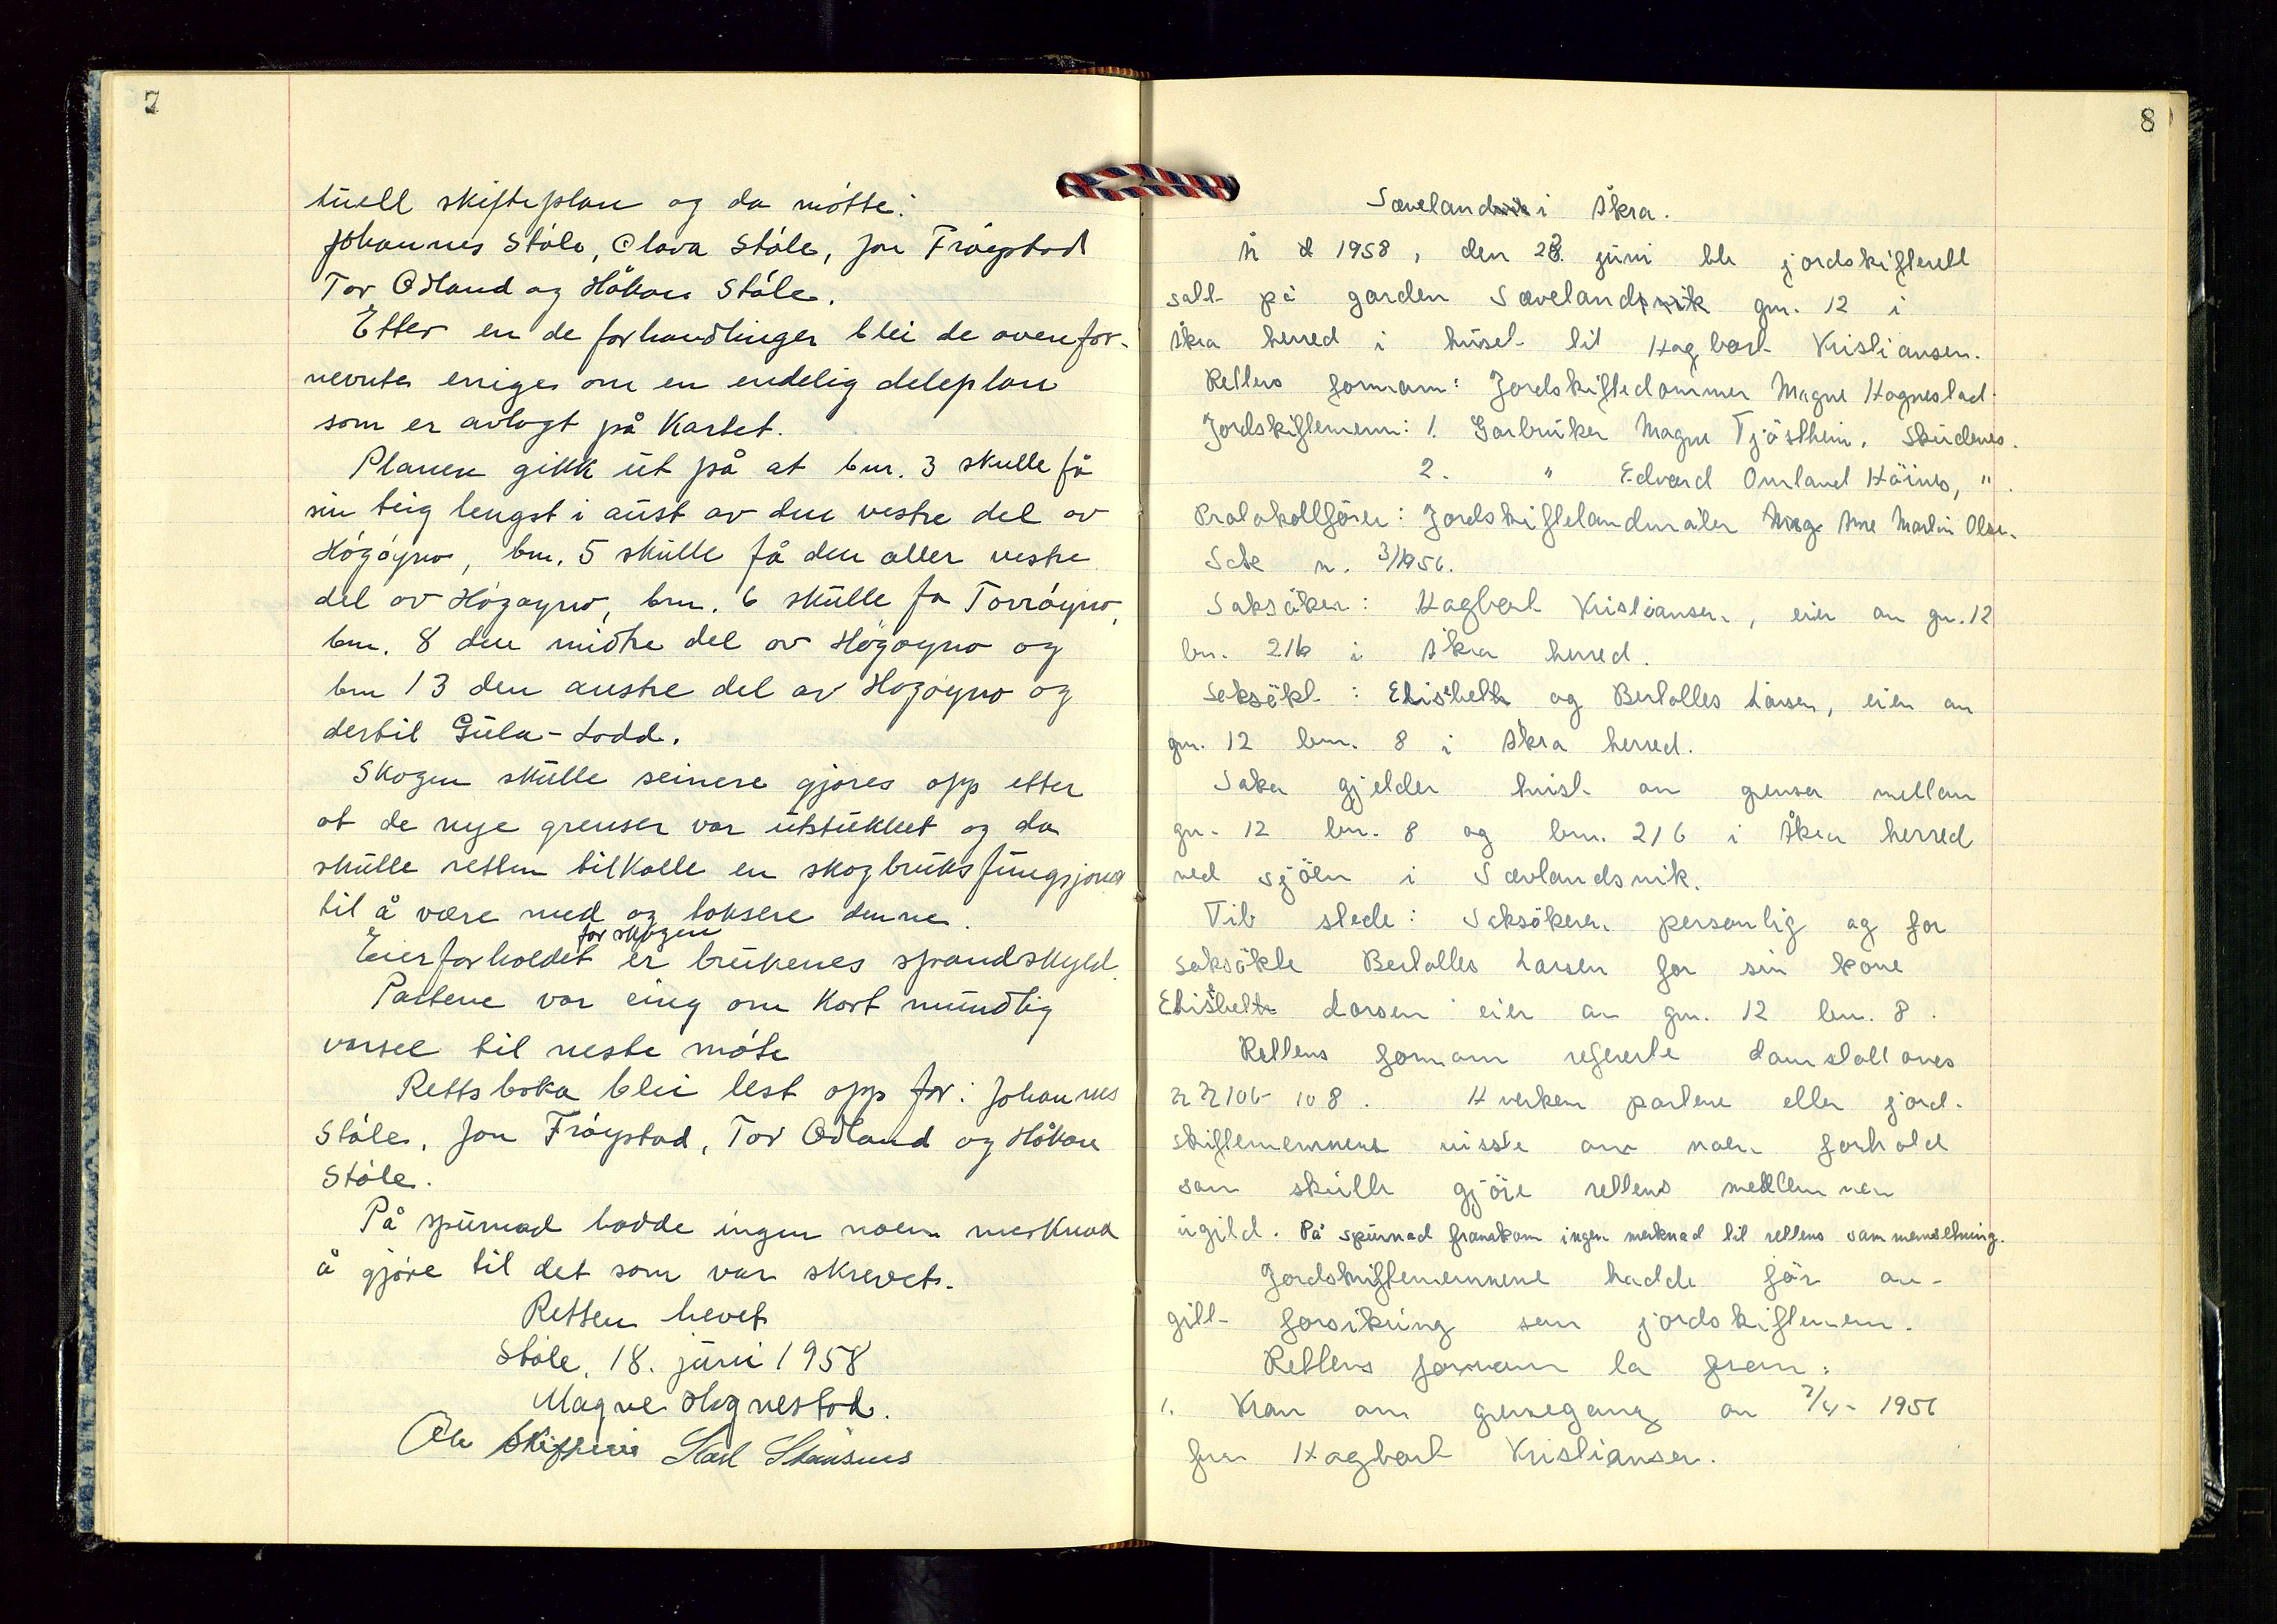 7
tuell skifteplan og da møtte:
Johannes Ståle, Olava Ståle, Jon Frøystad
Tor Odland og Håkon Ståle.
Etter en de forhandlinger blei de ovenfor-
nevnte eniges om en endelig deleplan
som er avlagt på Kartet.
Planen gikk ut på at bnr. 3 skulle få
sin teig lengst i aust av den vestre del av
Høgøyno, bnr. 5 skulle få den aller vestre
del av Høgøyno, bnr. 6 skulle få Torrøyno,
bnr. 8 den midtre del av Høgøyno og
bnr 13 den austre del av Høgøyno og
dertil Gula-Lodd.
Skogen skulle seinere gjøres opp etter
at de nye grenser var utstukket og da
skulle retten tilkalle en skogbruksfungsjonær
til å være med og taksere denne.
for skogen
Eierforholdet er brukenes skyld.
Partene var einig om kort mundtlig
varsel til neste møte
Rettsboka blei lest opp for: Johannes
Ståle, Jon Frøystad, Tor Odland og Håkon
Ståle.
På spurnad hadde ingen noen merknad
å gjøre til det som var skrevet.
Retten hevet
Ståle, 18. juni 1958
Magne Hognestad.
8
Sævelandsvik i Åkra.
År 1958, den 23. juni ble jordskifterett
satt på garden Sævelandsvik gnr. 12 i
Åkra herred i huset til Hagbart Kristiansen.
Rettens formann: Jordskiftedommer Magne Hognestad.
Jordskiftemenn: 1. Garbruker Magne Tjøstheim, Skudenes.
2. " Edvard Omland Høines, ".
Protokollfører: Jordskiftelandmåler Arne Martin Olsen.
Sak nr. 3/1956.
Saksøker: Hagbart Kristiansen, eier av gnr. 12
bnr. 216 i Åkra herred.
Saksøkt: Elisebeth og Bertolles Larsen, eier av
gnr. 12 bnr. 8 i Åkra herred.
Saka gjelder tvist om grensa mellom
gnr. 12 bnr. 8 og bnr. 216 i Åkra herred
ved sjøen i Sævlandsvik.
Til stede: Saksøkeren personlig og for
saksøkte Bertolles Larsen for sin kone
Elisebeth Larsen eier av gnr. 12 bnr. 8.
Rettens formann refererte domstollovens
§§ 106-108. Hverken partene eller jord-
skiftemennene visste om noen forhold
som skulle gjøre rettens medlemmer
ugild. På spurnad framkom ingen merknad til rettens sammensetning.
Jordskiftemennene hadde før av-
gitt forsikring som jordskiftemenn.
Rettens formann la fram:
1. Krav om grensegang av 7/4- 1956
fra Hagbart Kristiansen.